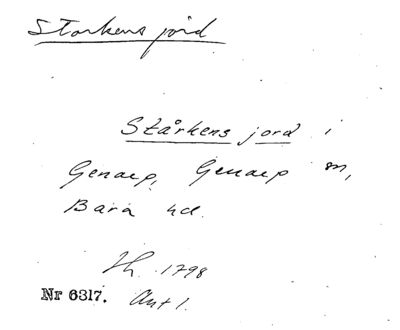 Storkens jord
Stårkens jord i
Genarp, Genarp sn,
Bara hd.
Lh. 1798
Nr 6317. Akt 1.